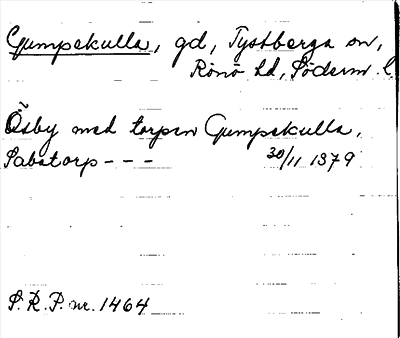 Gumpekulla, gd, Tystberga sn,
Rönö hd, Söderm. l.
Õsby med torpen Gumpekulla,
Sabetorp - - - 30/11 1379
S. R. P. nr. 1464